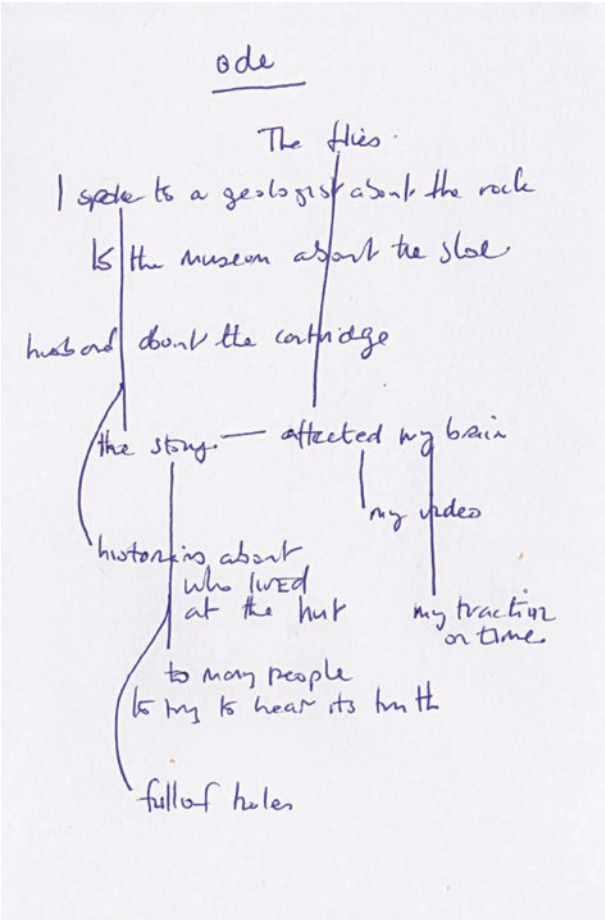 ode
The flies.
I spoke to a geologist about the rock
to the museum about the shoe
husband about the cartridge
the story — affected my brain
my video
historians about
who lived
at the hut
my traction
on time.
to many people
to try to hear its truth
full of holes